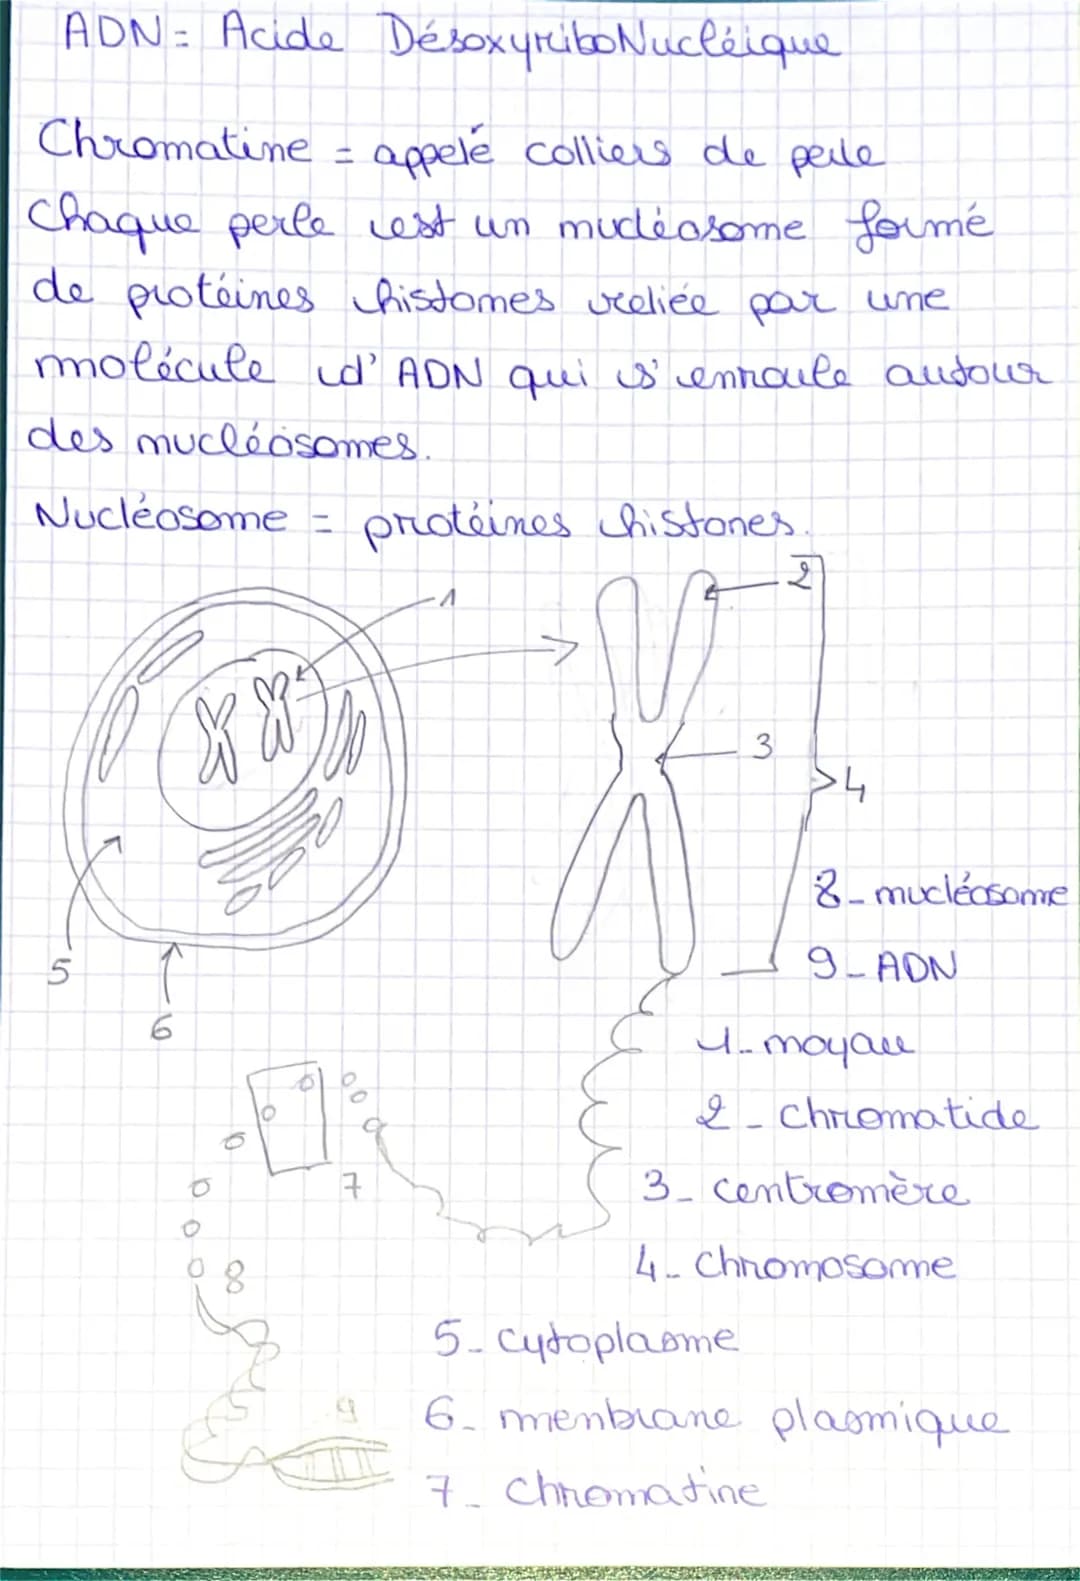 ADN = Acide DésoxyriboNucléique
Chromatine = appelé colliers de perle
Chaque perle est un nucléosome formé
de protéines histones reliée par une
molécule d'ADN qui s'enroule autour
des nucléosomes.
Nucléosome = protéines histones.
1
2
3
4
5
6
7
8
9
8 - nucléosome
9 - ADN
1 - noyau
2 - Chromatide
3 - centromère
4 - Chromosome
5 - cytoplasme
6 - menbrane plasmique
7 - Chromatine